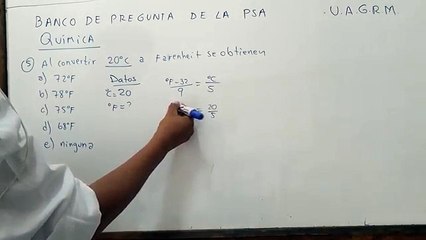 BANCO DE PREGUNTA DE LA PSA U.A.G.R.M
QUIMICA
⑤ Al convertir 20°C a Farenheit se obtienen
a) 72°F Datos (°F-32)/9 = °C/5
b) 78°F °C = 20
c) 75°F °F = ? = 20/5
d) 68°F
e) ninguna